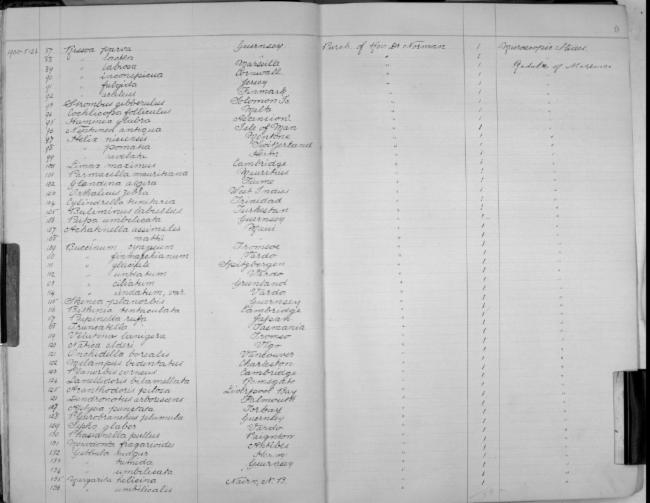 9
1900-5-22 87 Rissoa parva Guernsey Purch. of Rev. Dr. Norman 1 Microscopic Slides
88 " lactea " " 1
89 " labrosa Marseilla " 1 Radulae of Mollusca
90 " inconspicua Cornwall " 1
91 " fulgida Jersey " 1
92 " Finmark " 1
93 Strombus gibberulus Solomon Is. " 1
94 Cochlicopa folliculus Malta " 1
95 glabra Ascension " 1
96 Neptunea antiqua Isle of Man " 1
97 Helix niciensis Mentone " 1
98 " pomatia Switzerland " 1
99 " revelata " 1
100 Limax maximus Cambridge " 1
101 Parmacella mauritiana Mauritius " 1
102 Glandina algira Fiume " 1
103 Orthalicus zebra West Indies " 1
104 Cylindrella Trinidad " 1
105 Buliminus labiellus Turkestan " 1
106 Pupa umbilicata Guernsey " 1
107 Achatinella assimilis Maui " 1
108 " " " 1
109 Buccinum Tromsoe " 1
110 " finmarchianum Vardo " 1
111 " Spitzbergen " 1
112 " undatum Vardo " 1
113 " ciliatum Grunland " 1
114 " undatum, var. Vardo " 1
115 Skenea planorbis Guernsey " 1
116 Bithinia tentaculata Cambridge " 1
117 Pupinella rufa " 1
118 Truncatella Tasmania " 1
119 Velutina lanigera Tromso " 1
120 Natica alderi Vigo " 1
121 Onchidella borealis Vancouver " 1
122 Melampus bidentatus Charleston " 1
123 Planorbis corneus Cambridge " 1
124 Lamellidoris bilamellata Ramsgate " 1
125 Acanthodoris pilosa Liverpool Bay " 1
126 Dendronotus arborescens Falmouth " 1
127 Aplysia punctata Torbay " 1
128 Pleurobranchus plumula Guernsey " 1
129 Sipho glaber Vardo " 1
130 Phasianella pullus Paignton " 1
131 fragarioides " 1
132 Gibbula " 1
133 " tumida Guernsey " 1
134 " umbilicata " " 1
135 Margarita helicina Nairn, N.B. " 1
136 " umbilicalis " 1